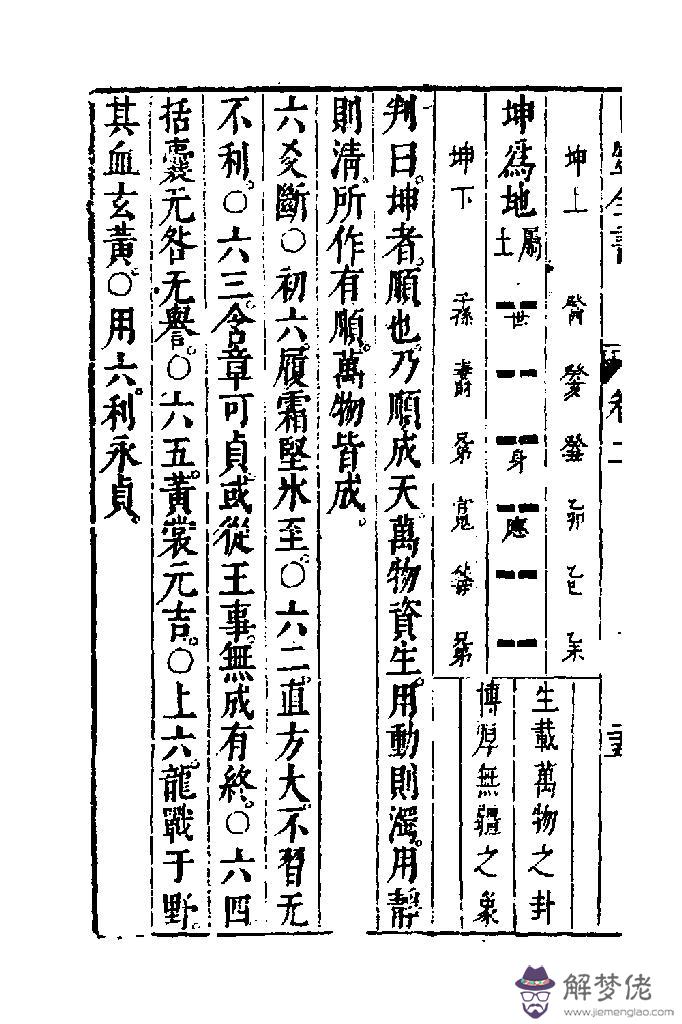 坤上
坤為地屬土
坤下
癸酉 癸亥 癸丑 乙卯 乙巳 乙未
世 身 應
子孫 妻財 兄弟 官鬼 父母 兄弟
生載萬物之卦
博厚無疆之象
判曰。坤者。順也。乃順成天。萬物資生。用動則濁。用靜
則清。所作有順。萬物皆成。
六爻斷〇初六。履霜堅氷至。〇六二。直方大。不習无
不利。〇六三。含章可貞。或從王事。無成有終。〇六四
括囊。无咎无譽。〇六五。黃裳元吉。〇上六。龍戰于野。
其血玄黃。〇用六。利永貞。
解梦佬
www.jiemenglao.com